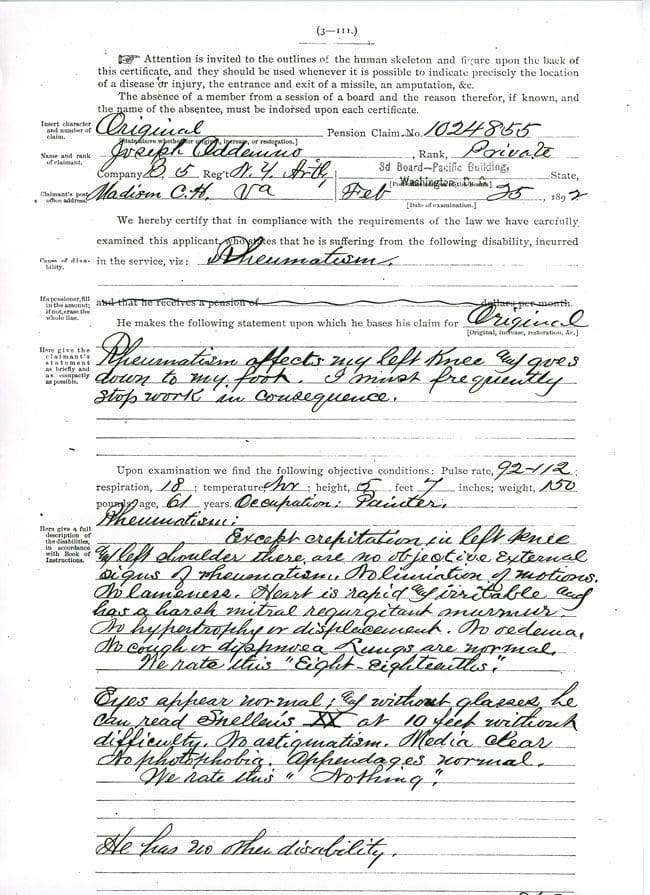 (3—111.)
☞ Attention is invited to the outlines of the human skeleton and figure upon the back of
this certificate, and they should be used whenever it is possible to indicate precisely the location
of a disease or injury, the entrance and exit of a missile, an amputation, &c.
The absence of a member from a session of a board and the reason therefor, if known, and
the name of the absentee, must be indorsed upon each certificate.
Insert character and number of claim.
Original Pension Claim No. 1024855
[State above whether for original, increase, or restoration.]
Name and rank of claimant.
Joseph Oddenino, Rank, Private
Company B, 5 Reg't N.Y. Arty, 3d Board—Pacific Building, State,
Washington, D.C.
Claimant's post office address.
Madison C.H. Va Feb 25, 1892
[Date of examination.]
We hereby certify that in compliance with the requirements of the law we have carefully
examined this applicant, who states that he is suffering from the following disability, incurred
Cause of disability.
in the service, viz: Rheumatism.
If a pensioner, fill in the amount; if not, erase the whole line.
and that he receives a pension of dollars per month.
He makes the following statement upon which he bases his claim for Original
[Original, increase, restoration, &c.]
Here give the claimant's statement as briefly and as compactly as possible.
Rheumatism affects my left knee & goes
down to my foot. I must frequently
stop work in consequence.
Upon examination we find the following objective conditions: Pulse rate, 92-112;
respiration, 18; temperature, nor; height, 5 feet 7 inches; weight, 150
pounds; age, 61 years. Occupation: Painter.
Here give a full description of the disabilities, in accordance with Book of Instructions.
Rheumatism:
Except crepitation in left knee
& left shoulder there are no objective external
signs of rheumatism. No limiation of motions.
No lameness. Heart is rapid & irritable and
has a harsh mitral regurgitant murmur.
No hypertrophy or displacement. No oedema.
No cough or dyspnoea Lungs are normal.
We rate this "Eight-Eighteenths".
Eyes appear normal; & without glasses he
can read Snellens XX at 10 feet without
difficulty. No astigmatism. Media clear
No photophobia. Appendages normal.
We rate this "Nothing".
He has no other disability.